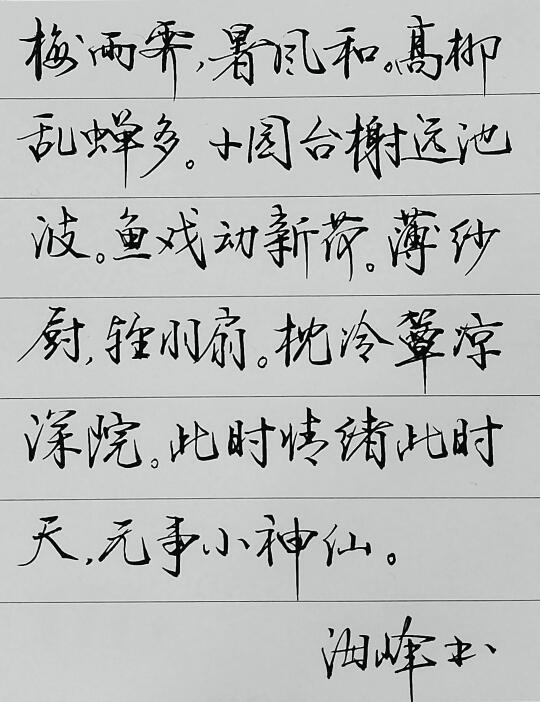 梅雨霁,暑风和。高柳
乱蝉多。小园台榭远池
波。鱼戏动新荷。薄纱
厨,轻羽扇。枕冷簟凉
深院。此时情绪此时
天,无事小神仙。
海峰书